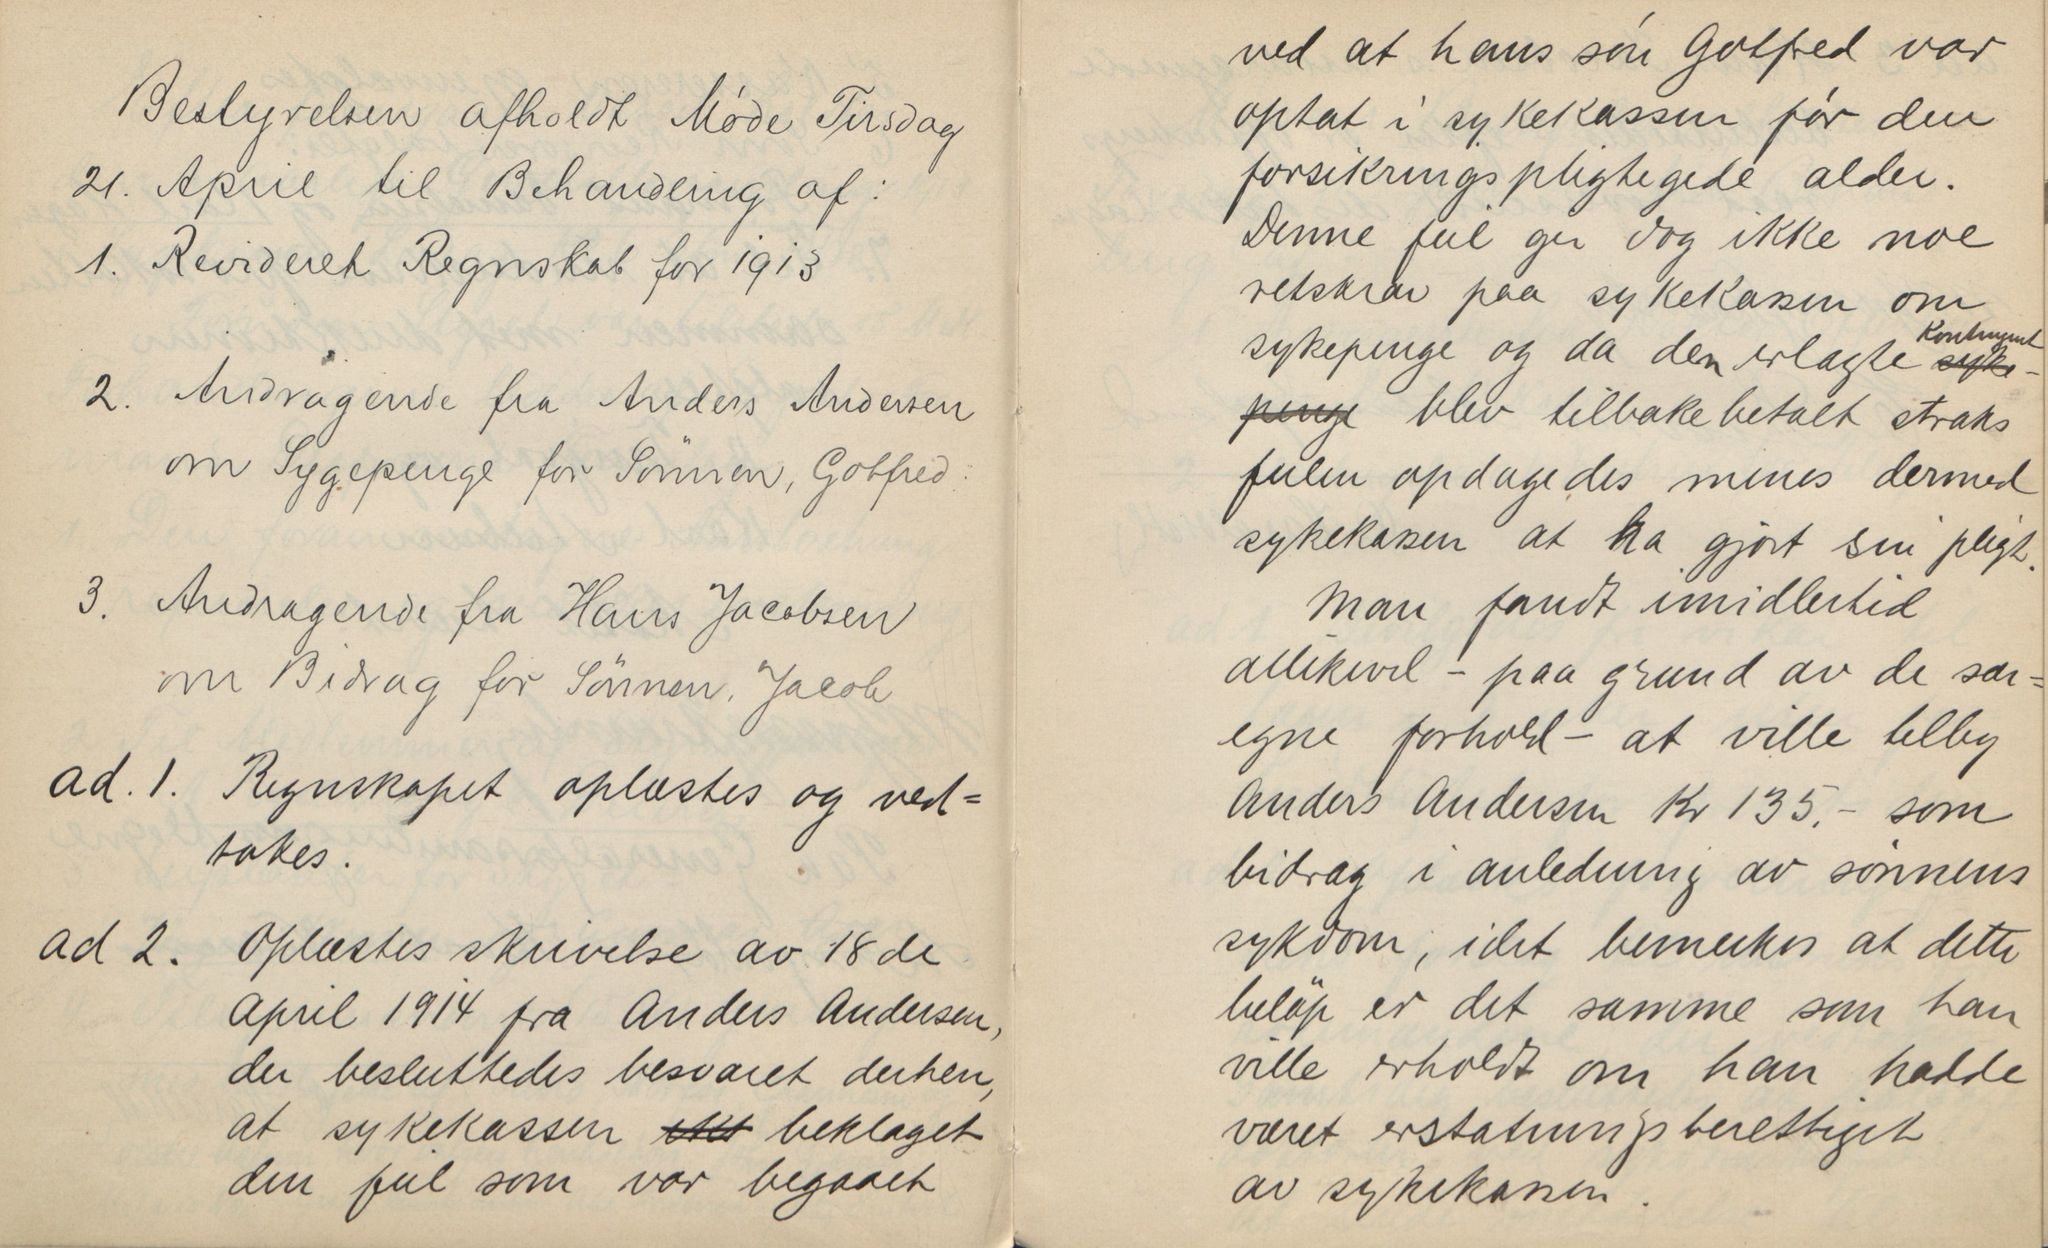 Bestyrelsen afholdt Møde Tirsdag
21. April til Behandling af:
1. Revideret Regnskab for 1913
2. Andragende fra Anders Andersen
om Sygepenge for Sönnen, Gotfred.
3. Andragende fra Hans Jacobsen
om Bidrag for Sönnen, Jacob
ad. 1. Regnskapet oplæstes og ved=
tokes.
ad 2. Oplæstes skrivelse av 18 de
April 1914 fra Anders Andersen,
der besluttedes besvaret derhen,
at sykekassen beklaget
den feil som var begaaet
ved at hans søn Gotfred var
optat i sykekassen før den
forsikringspligtegede alder.
Denne feil ger dog ikke noe
retskrav paa sykekassen om
sykepenge og da den erlagte Kontingent syke-
penge blev tilbakebetalt straks
feilen opdagedes menes dermed
sykekassen at ha gjort sin pligt.
Man fandt imidlertid
allikevel - paa grund av de sær=
egne forhold - at ville tilby
Anders Andersen Kr 135.- som
bidrag i anledning av sönnens
sykdom, idet bemerkes at dette
beløp er det samme som han
ville erholdt om han hadde
været erstatningsberettiget
av sykekassen.